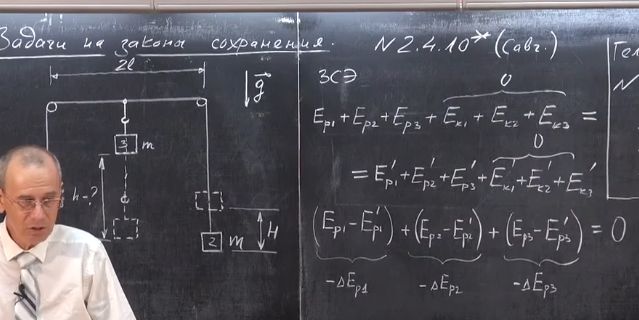 Задачи на законы сохранения.
N 2.4.10* (Савч.)
2l
g⃗
3
m
h-?
2
m
H
ЗСЭ
0
E_{p1} + E_{p2} + E_{p3} + E_{k1} + E_{k2} + E_{k3} =
0
= E'_{p1} + E'_{p2} + E'_{p3} + E'_{k1} + E'_{k2} + E'_{k3}
(E_{p1} - E'_{p1}) + (E_{p2} - E'_{p2}) + (E_{p3} - E'_{p3}) = 0
-ΔE_{p1} -ΔE_{p2} -ΔE_{p3}
N